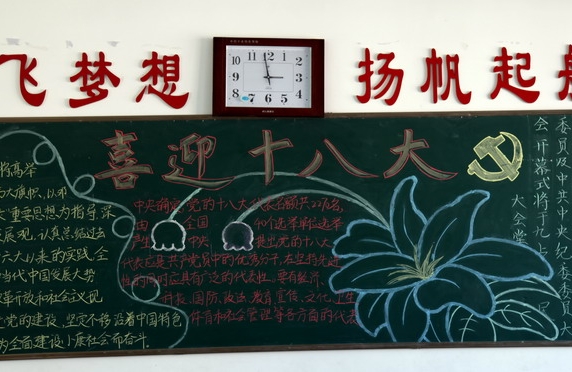 飞梦想
扬帆起航
12
1
2
3
4
5
6
7
8
9
10
11
喜迎十八大
将高举
重要思想为指导,深
展观,认真总结过去
六大以来的实践,全
当代中国发展大势
改革开放和社会主义现
党的建设,坚定不移沿着中国特色
为全面建设小康社会而奋斗.
中央确定,党的十八大代表名额共2270名,
由 全国 40个选举单位选举
产生 中央 提出党的十八大
代表应是共产党员中的优秀分子,在坚持先进
性的同时应具有广泛的代表性。要有经济、
科技、国防、政法、教育、宣传、文化、卫生、
体育和社会管理等各方面的代表
委员及中共中央纪委委员
会开幕式将于
大会堂